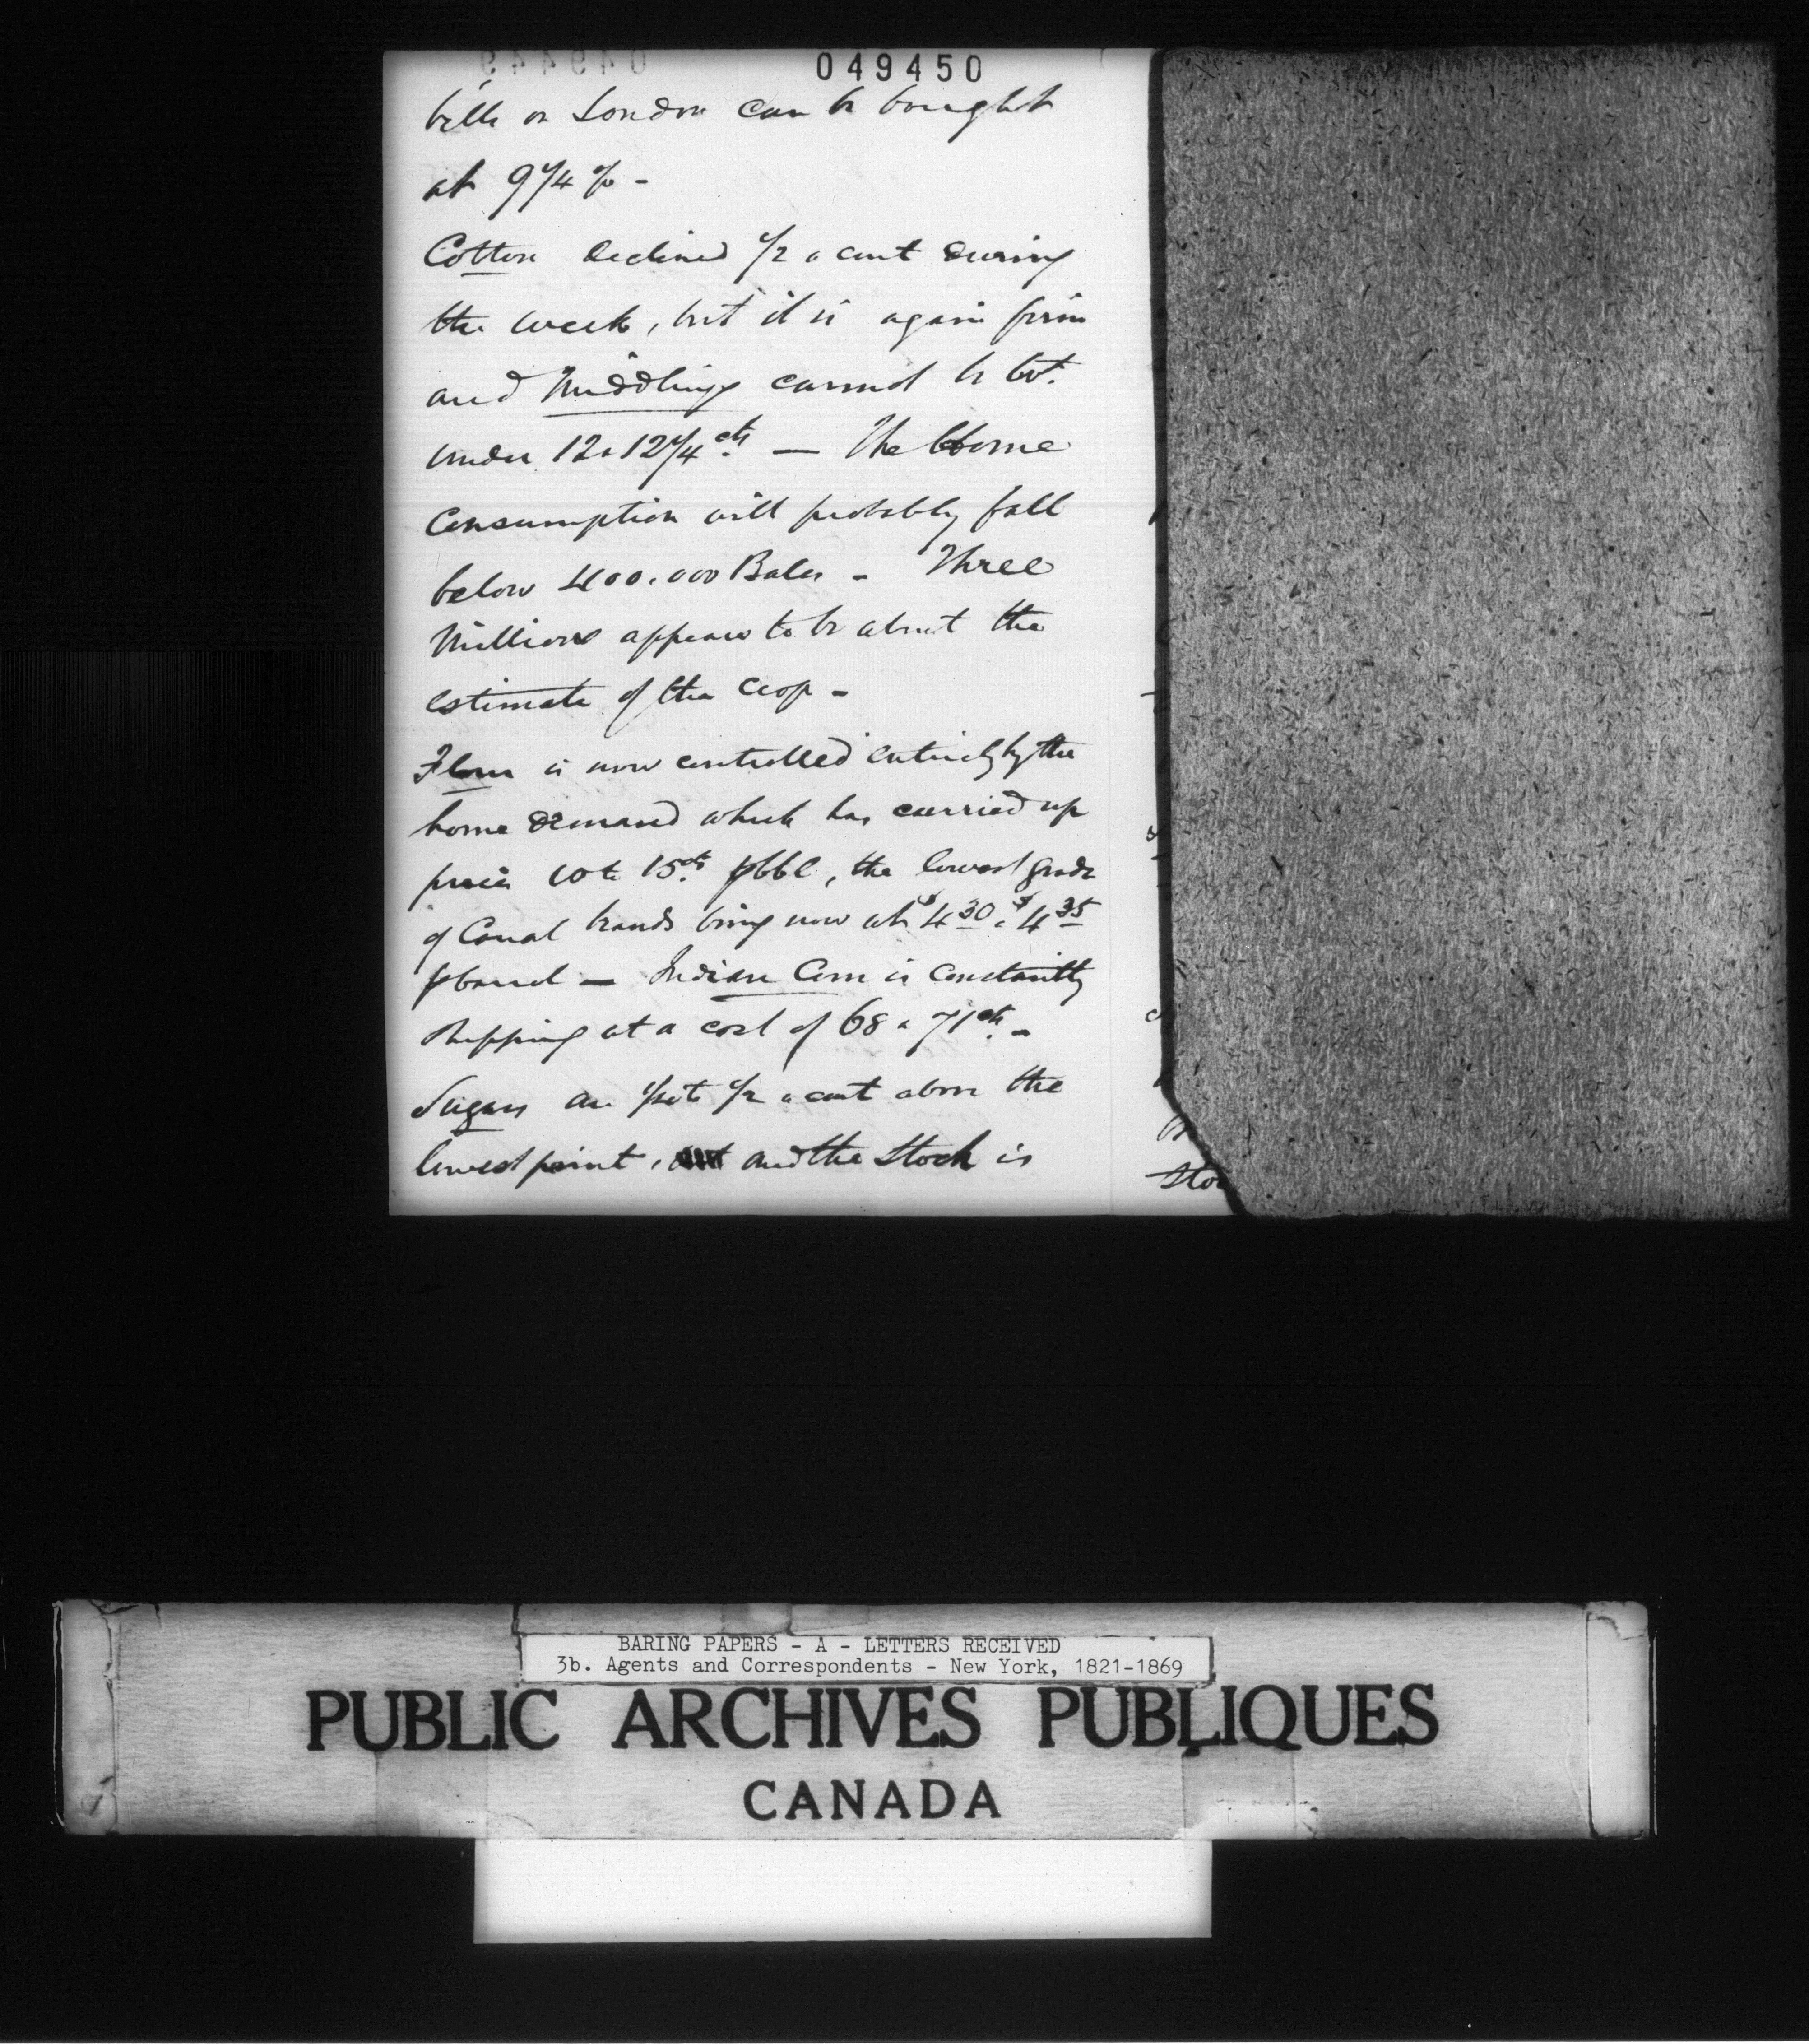 049450
bills on London can be bought
at 9 1/4 % -
Cotton declined 1/2 a cent during
the week, but it is again firm
and Middling cannot be bot.
under 12 a 12 1/4 cts — The Home
Consumption will probably fall
below 400.000 Bales - Three
Millions appears to be about the
estimate of the Crop -
Flour is now controlled entirely by the
home demand which has carried up
prices 10 to 15 cts pbbl, the lowest grade
of Canal brands being now at $4 30 a $4 35
p barrel — Indian Corn is Constantly
shipping at a cost of 68 a 71 cts. -
Sugars are to 1/2 a cent above the
lowest point, and the Stock is
sto
BARING PAPERS - A - LETTERS RECEIVED
3b. Agents and Correspondents - New York, 1821-1869
PUBLIC ARCHIVES PUBLIQUES
CANADA